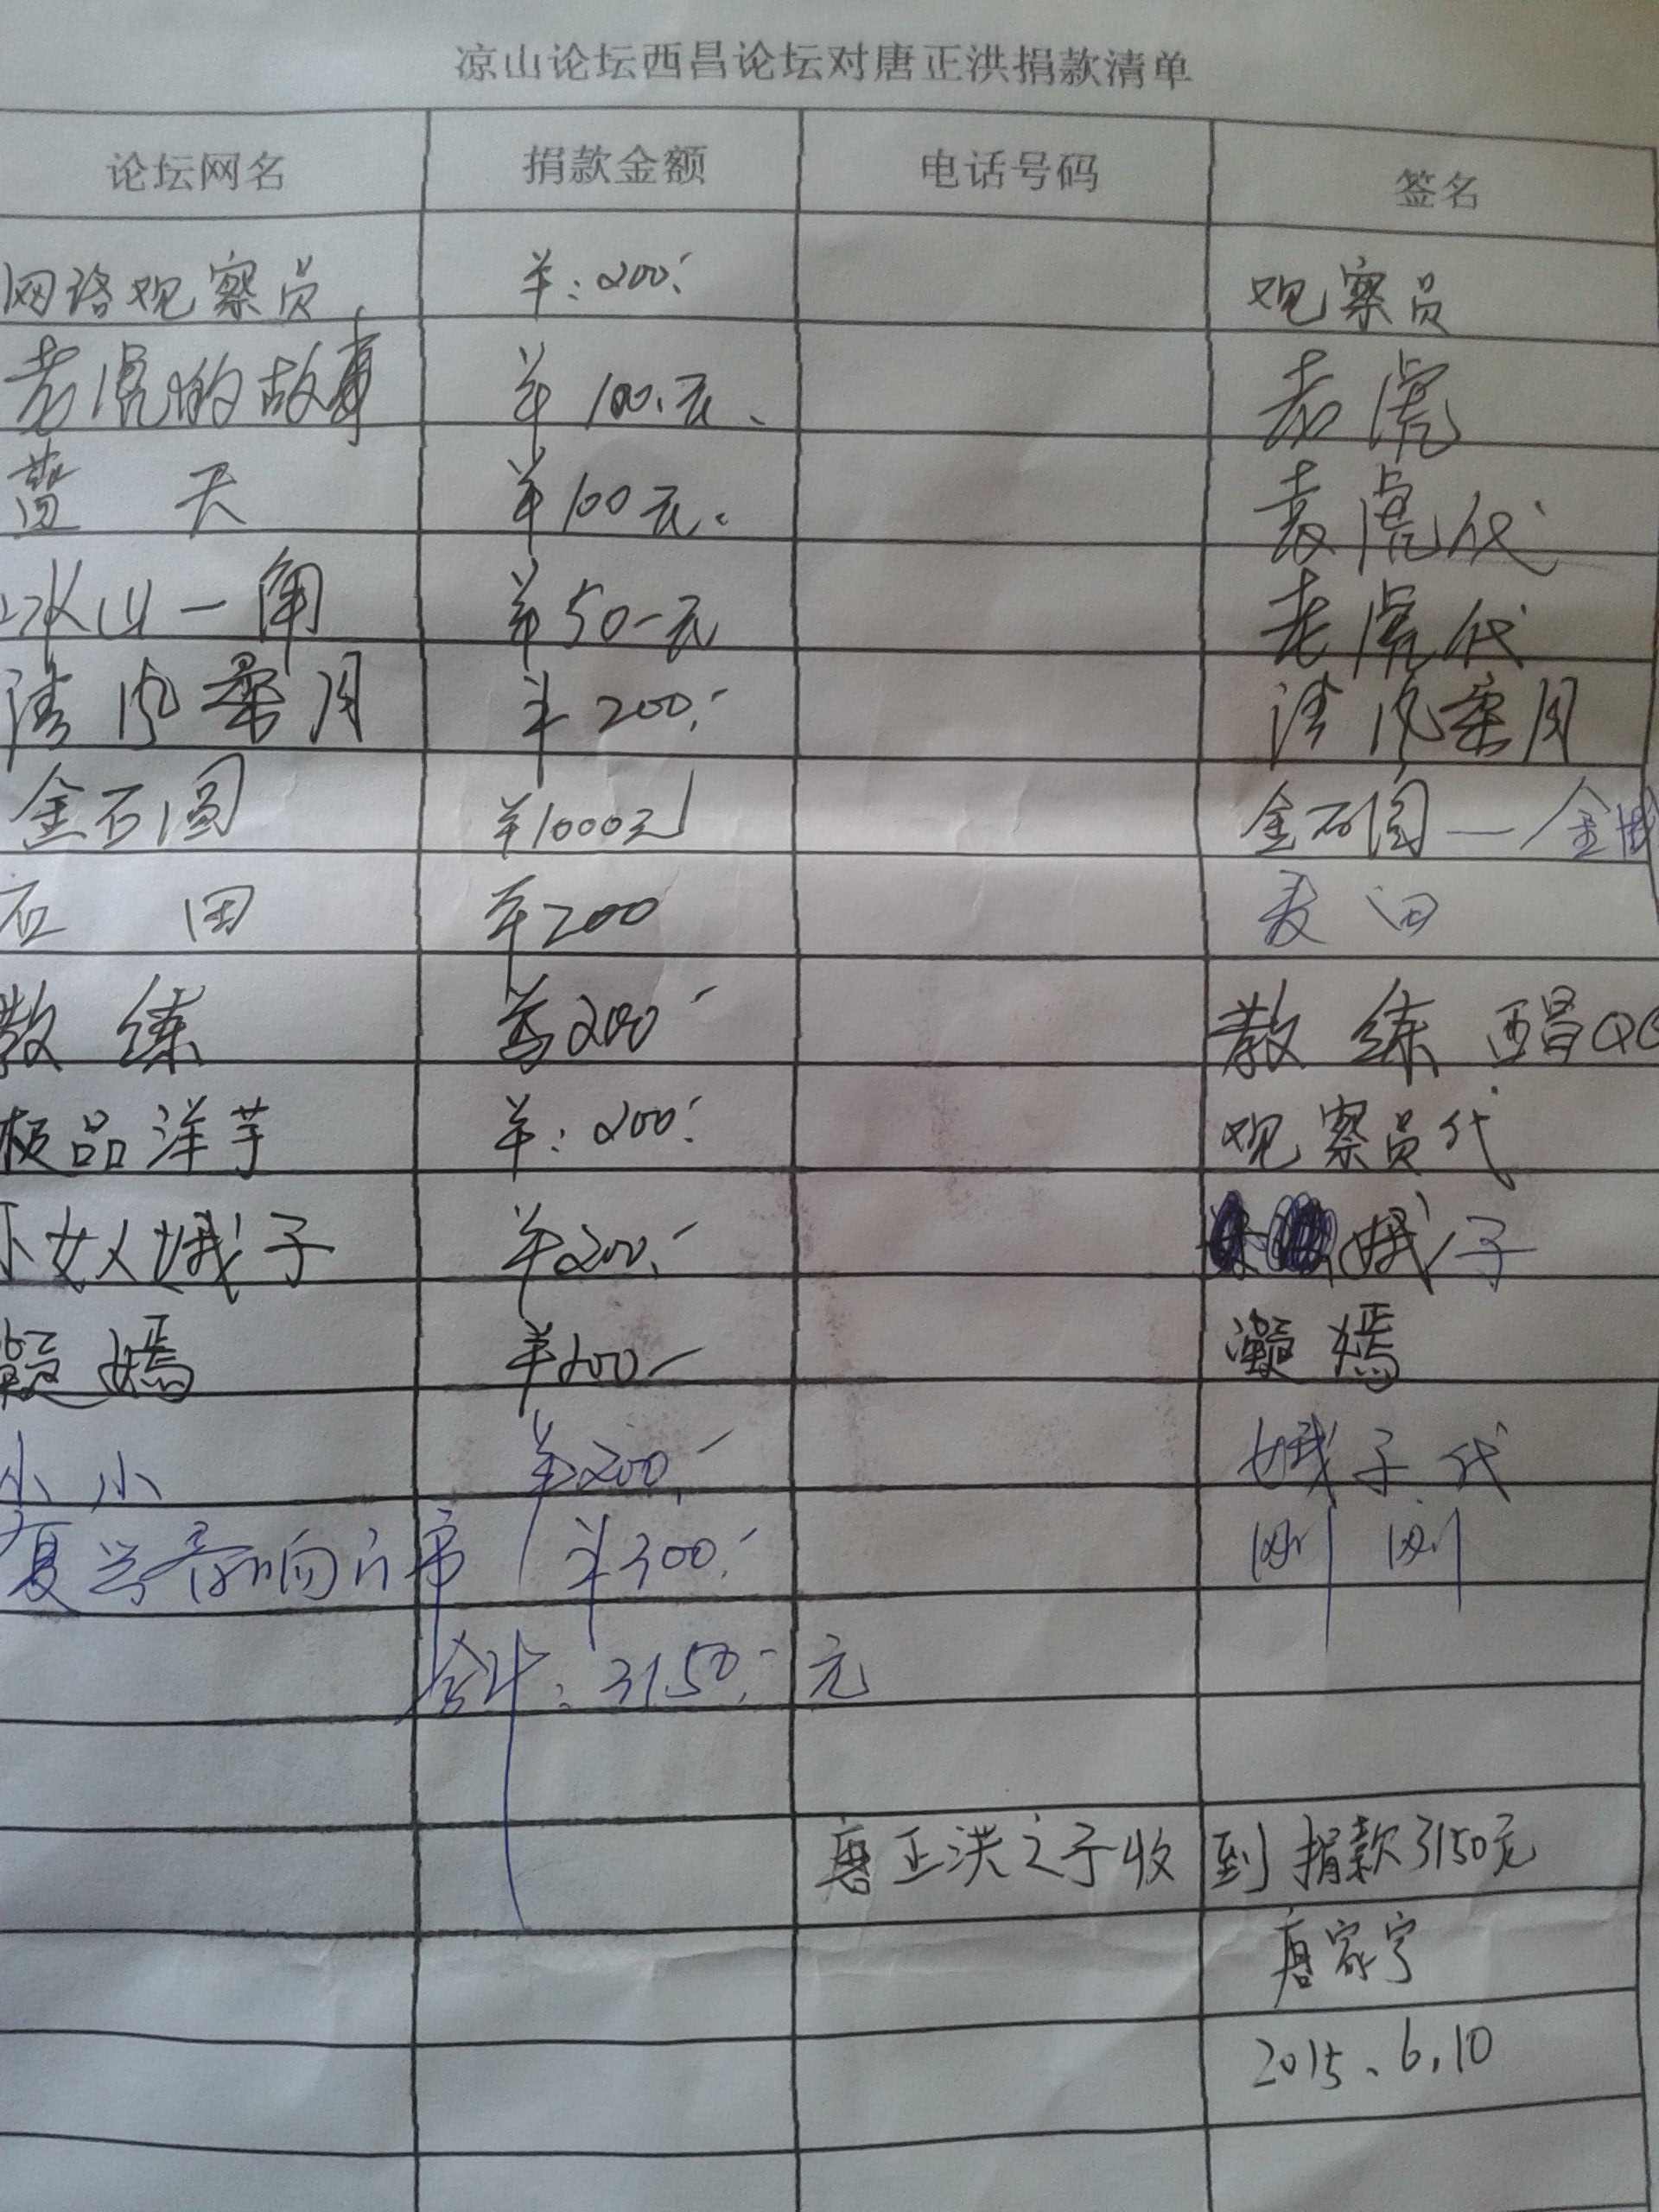 凉山论坛西昌论坛对唐正洪捐款清单
论坛网名 捐款金额 电话号码 签名
网络观察员 ¥:200.- 观察员
老虎的故事 ¥100.元、 老虎
蓝天 ¥100元. 老虎代
冰山一角 ¥50-元 老虎代
清风柔月 ¥200.- 清风柔月
金石阁 ¥1000元 金石阁—金
石田 ¥200 田
教练 ¥200- 教练 西昌QQ
极品洋芋 ¥:200.- 观察员代
小女人娥子 ¥200.- 娥子
凝嫣 ¥200- 凝嫣
小小 ¥200.- 娥子代
复兴音响门市 ¥300.- 刚刚
合计:3150.-元
唐正洪之子收到捐款3150元
唐家宁
2015、6.10